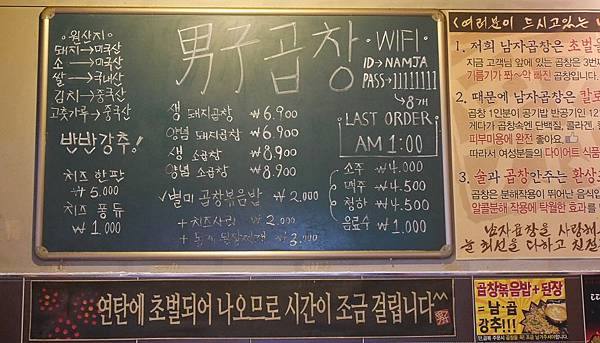 男子곱창
·원산지·
돼지→미국산
소→미국산
쌀→국내산
김치→중국산
고춧가루→중국산
반반강추!
치즈 한판
₩5,000
치즈 퐁듀
₩1,000
생 돼지곱창 ₩6.900
양념 돼지곱창 ₩6.900
생 소곱창 ₩8.900
양념 소곱창 ₩8.900
별미 곱창볶음밥 ₩2.000
+치즈사리 ₩2.000
₩3.000
·WIFI·
ID→NAMJA
PASS→11111111
↳8개
LAST ORDER
AM 1:00
소주 ₩4.000
맥주 ₩4.500
청하 ₩4.500
음료수 ₩1.000
<여러분이 드시고있는
1. 저희 남자곱창은 초벌을
지금 고객님 앞에 있는 곱창은 3번째
기름기가 쫘~악 빠진 곱창입니다.
2. 때문에 남자곱창은 칼로
곱창 1인분이 공기밥 반공기인 12
게다가 곱창속엔 단백질, 콜라겐,
피부미용에 완전 좋아요.
따라서 여성분들의 다이어트 식품
3. 술과 곱창안주는 환상
곱창은 분해작용이 뛰어난 음식입
알콜분해 작용에 탁월한 효과를
남자곱창을 사랑해
늘 최선을 다하고 친절
연탄에 초벌되어 나오므로 시간이 조금 걸립니다^^
곱창볶음밥+된장
=남.곱
강추!!!